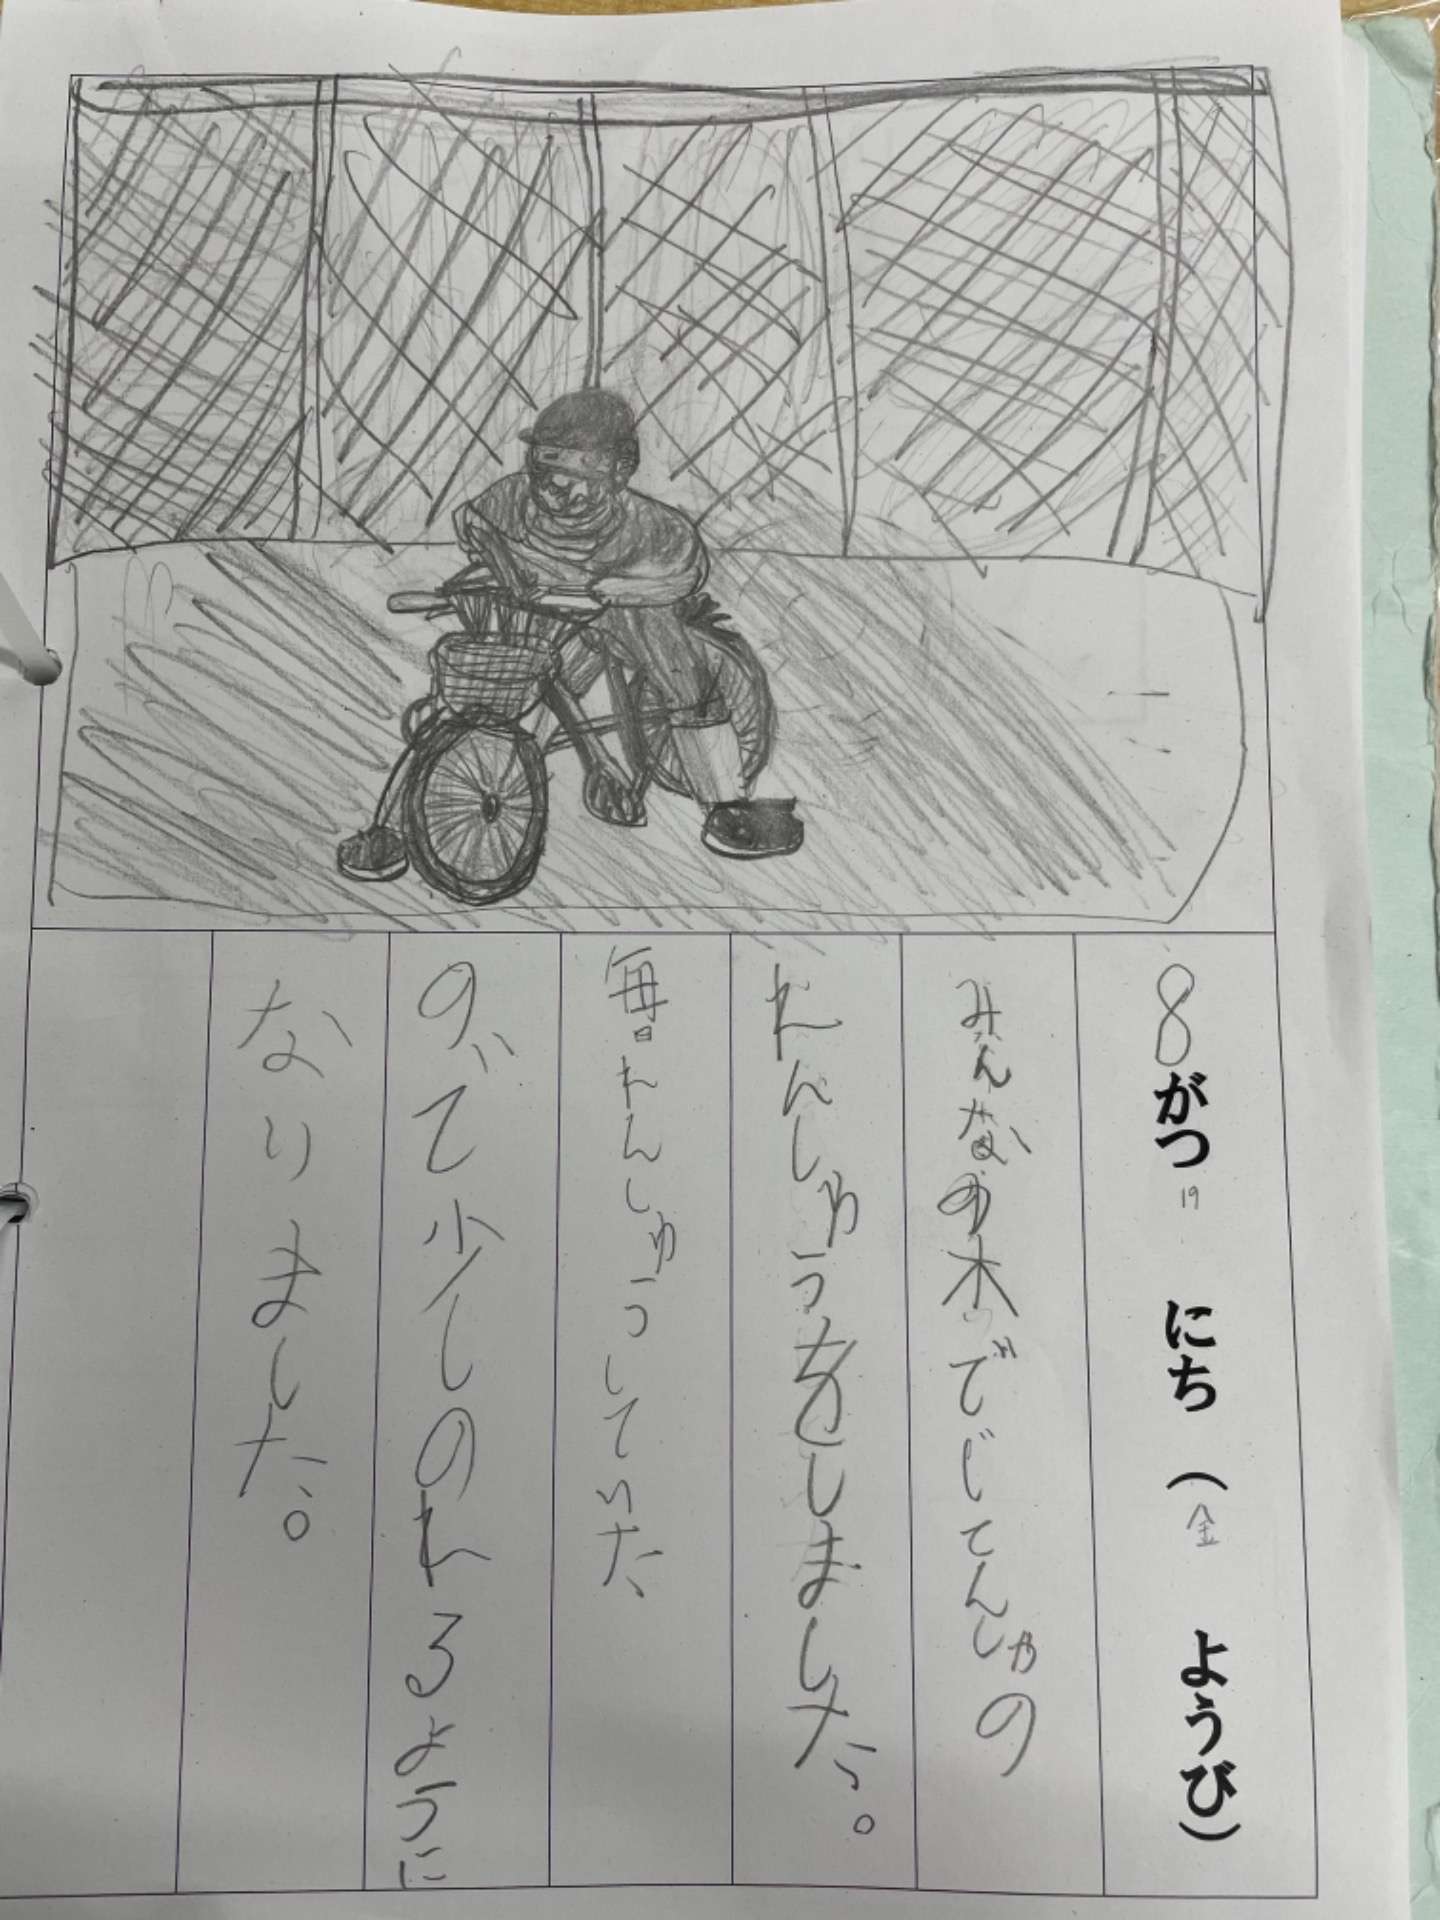 8がつ19にち（金ようび）
みんなの木でじてんしゃの
れんしゅうをしました。
毎日れんしゅうしていた
ので少しのれるように
なりました。